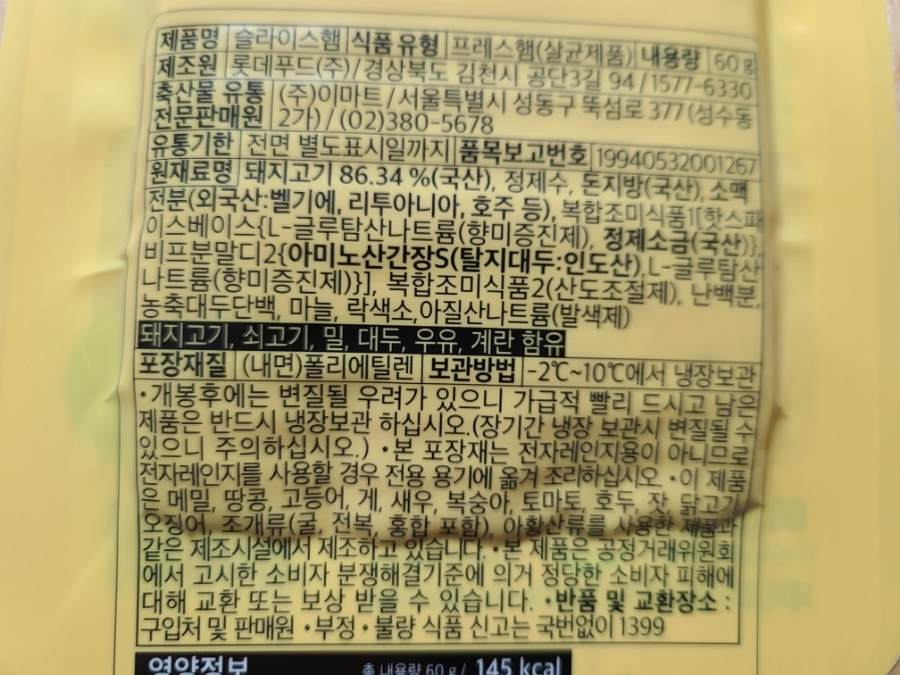 제품명 슬라이스햄 식품유형 프레스햄(살균제품) 내용량 60 g
제조원 롯데푸드(주)/경상북도 김천시 공단3길 94/1577-6330
축산물 유통 (주)이마트/서울특별시 성동구 뚝섬로 377 (성수동
전문판매원 2가)/(02)380-5678
유통기한 전면 별도표시일까지 품목보고번호 19940532001267
원재료명 돼지고기 86.34 %(국산), 정제수, 돈지방(국산), 소맥
전분(외국산:벨기에, 리투아니아, 호주 등), 복합조미식품1[핫스파
이스베이스{L-글루탐산나트륨(향미증진제), 정제소금(국산)},
비프분말디2{아미노산간장S(탈지대두:인도산),L-글루탐산
나트륨(향미증진제)}], 복합조미식품2(산도조절제), 난백분,
농축대두단백, 마늘, 락색소,아질산나트륨(발색제)
돼지고기, 쇠고기, 밀, 대두, 우유, 계란 함유
포장재질 (내면)폴리에틸렌 보관방법 -2℃~10℃에서 냉장보관
•개봉후에는 변질될 우려가 있으니 가급적 빨리 드시고 남은
제품은 반드시 냉장보관 하십시오.(장기간 냉장 보관시 변질될 수
있으니 주의하십시오.) •본 포장재는 전자레인지용이 아니므로
전자레인지를 사용할 경우 전용 용기에 옮겨 조리하십시오 •이 제품
은 메밀, 땅콩, 고등어, 게, 새우, 복숭아, 토마토, 호두, 잣, 닭고기,
오징어, 조개류(굴, 전복, 홍합 포함), 아황산류를 사용한 제품과
같은 제조시설에서 제조하고 있습니다. •본 제품은 공정거래위원회
에서 고시한 소비자 분쟁해결기준에 의거 정당한 소비자 피해에
대해 교환 또는 보상 받을 수 있습니다. •반품 및 교환장소 :
구입처 및 판매원 •부정•불량 식품 신고는 국번없이 1399
영양정보 총 내용량 60 g/ 145 kcal